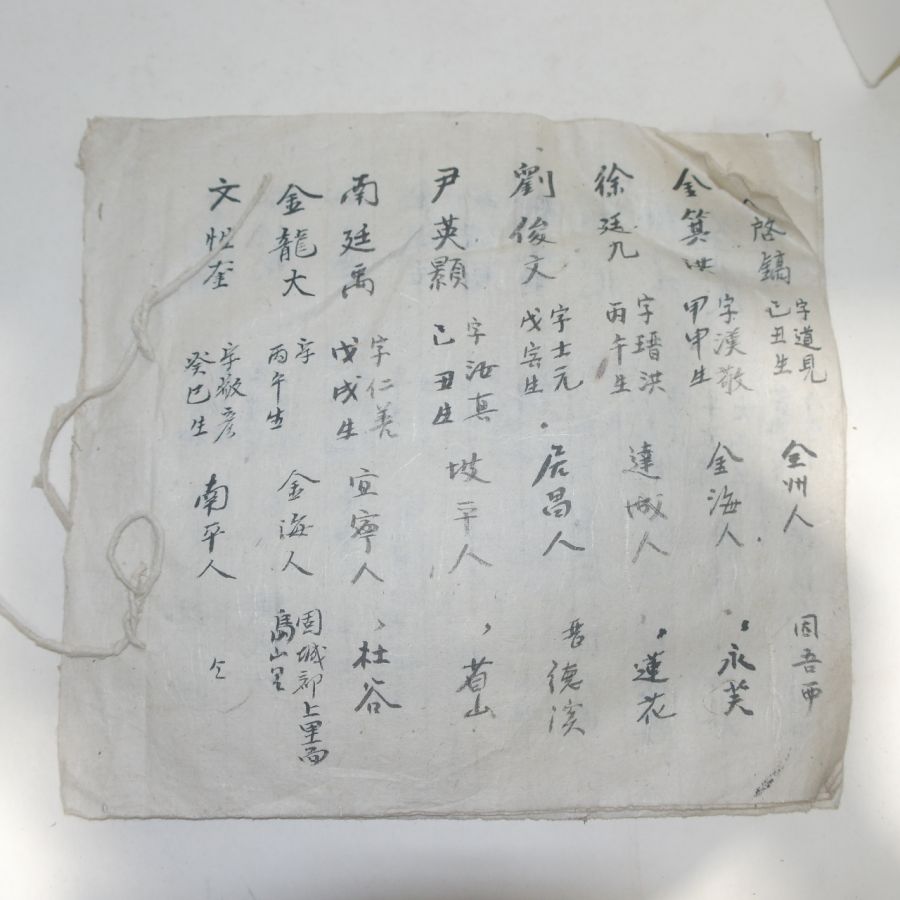 啓鎬 字道見 己丑生 全州人 固吾面
金箕洪 字漢敬 甲申生 金海人 〃 永芙
徐廷九 字瑨洪 丙午生 達城人 〃 蓮花
劉俊文 字士元 戊寅生 居昌人 晋 德溪
尹英顥 字汝真 己丑生 坡平人 〃 省山
南廷禹 字仁善 戊戌生 宜寧人 〃 杜谷
金龍大 字 丙午生 金海人 固城郡上里面 烏山里
文 奎 字敬彦 癸巳生 南平人 仝